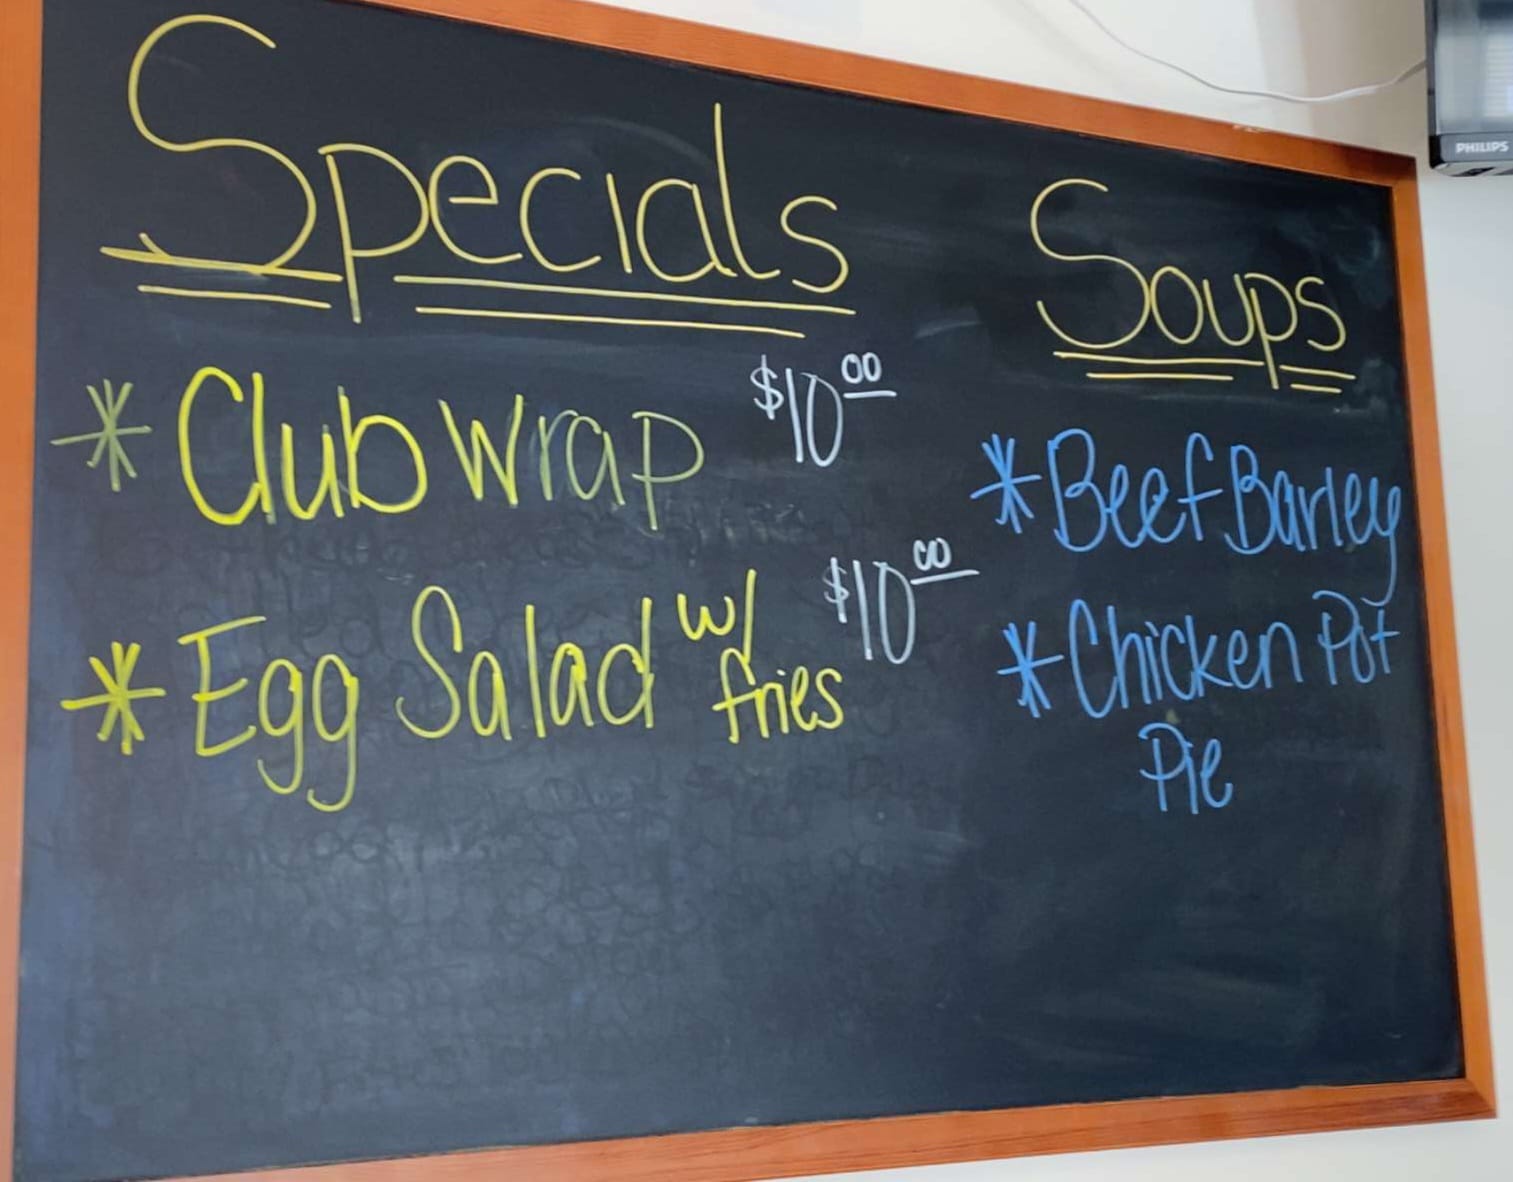 Specials
* Club Wrap $10.00
* Egg Salad w/ fries $10.00
Soups
* Beef Barley
* Chicken Pot
Pie
PHILIPS